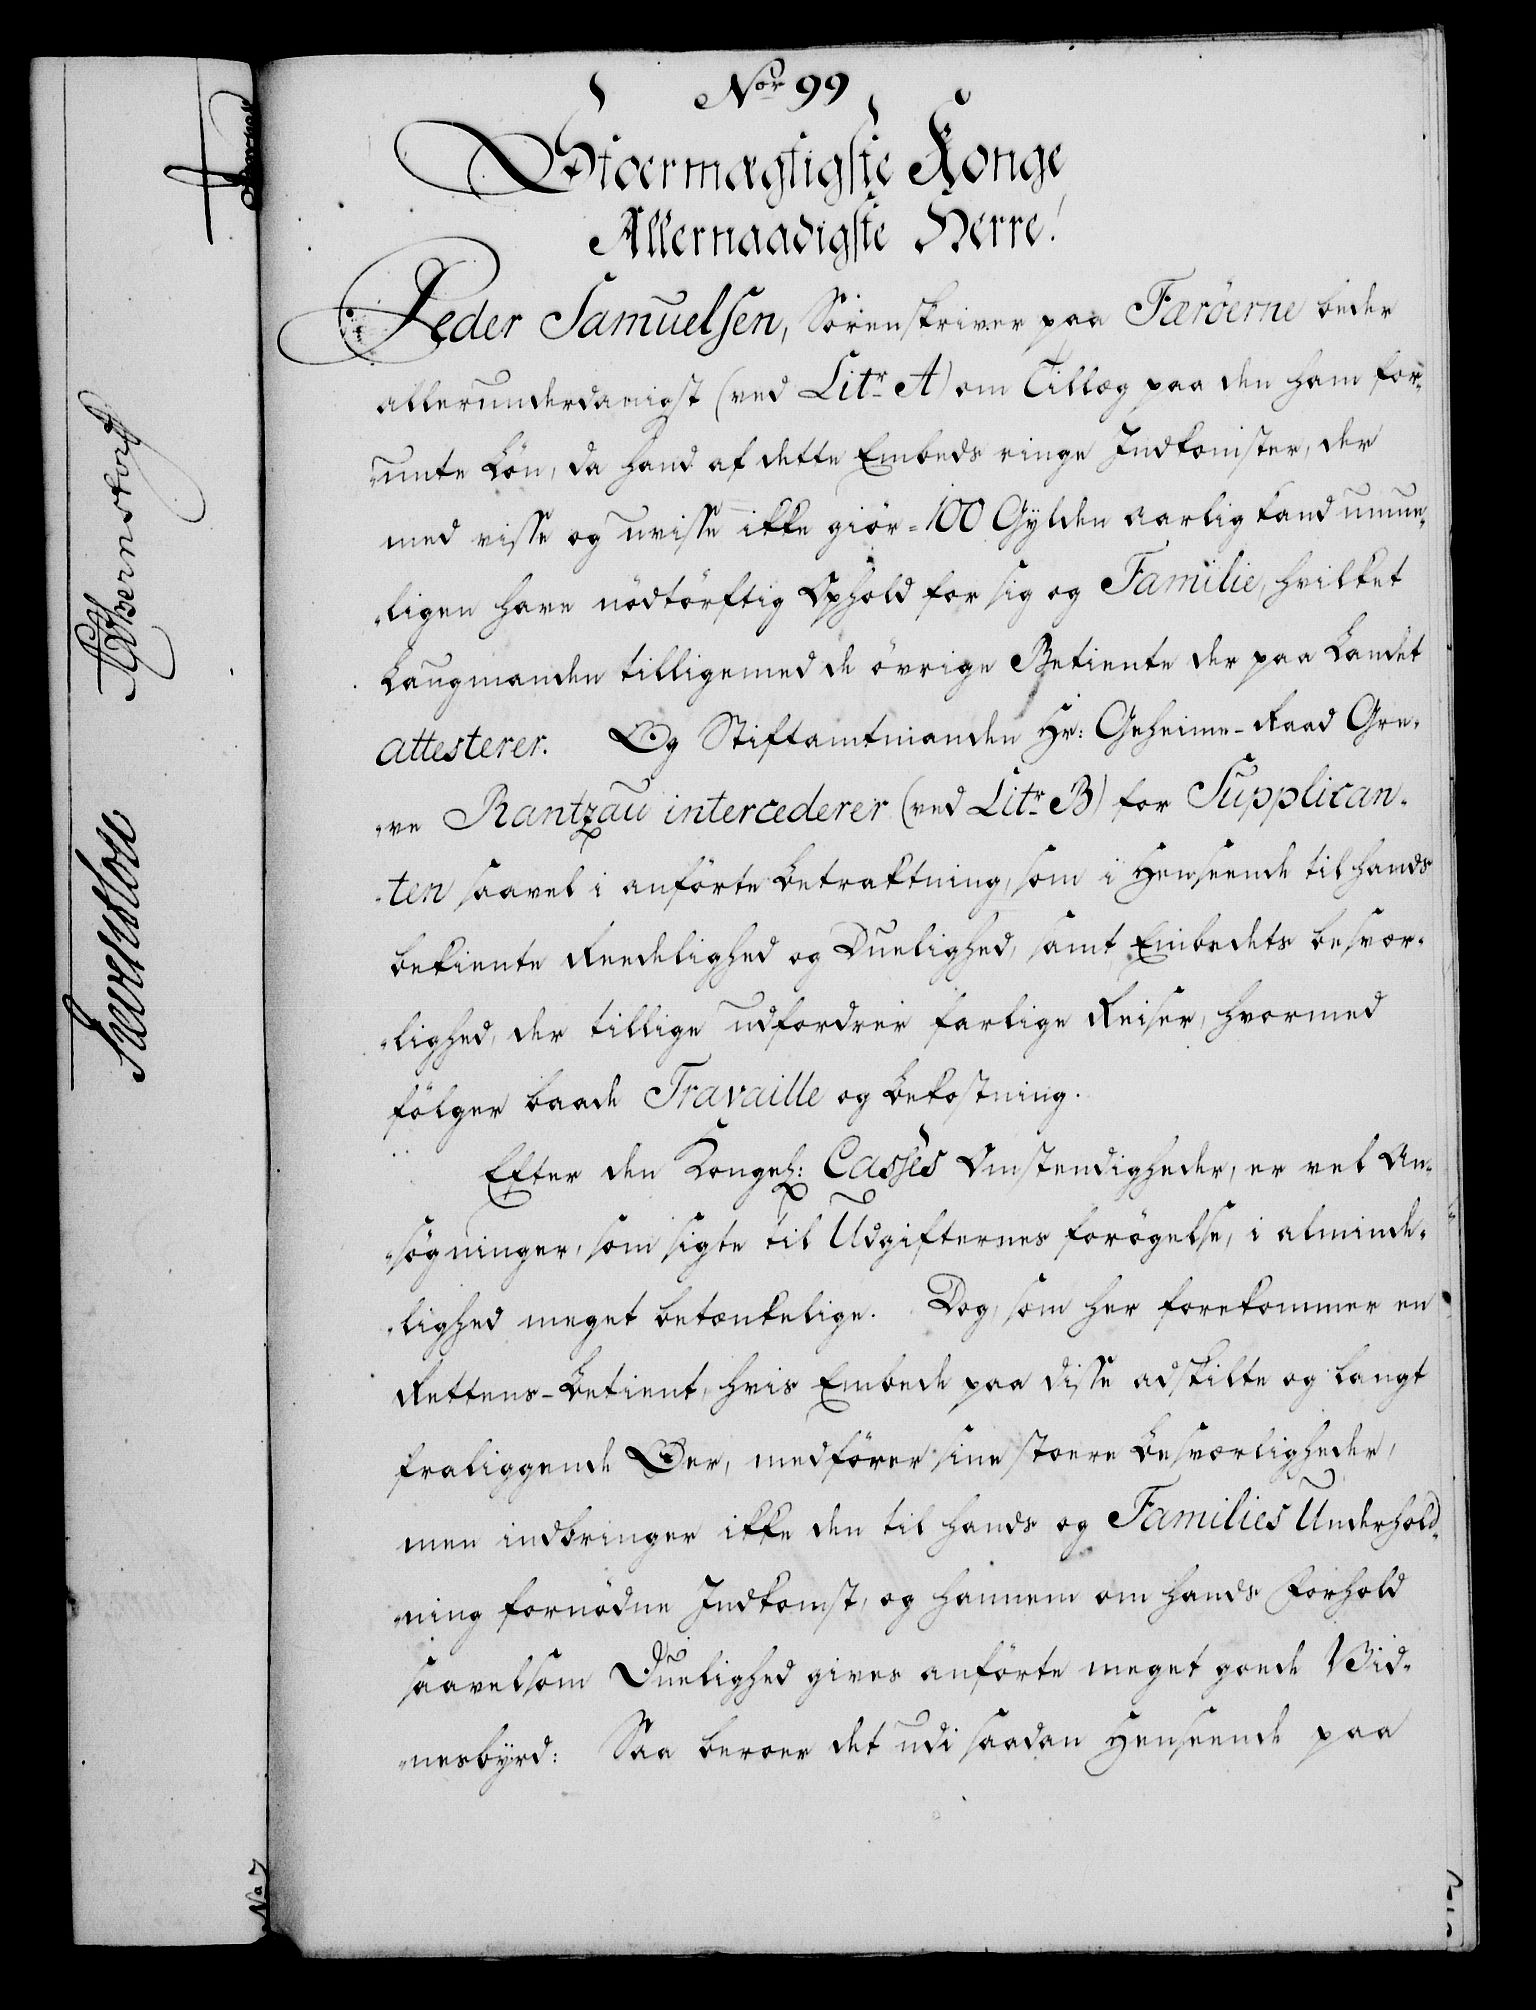 Nor 99
Stoermægtigste Konge
Allernaadigste Herre!
Peder Samuelsen, Sörenskriver paa Færöerne beder
allerunderdanigst (ved Litr A) om Tillæg paa den ham for-
undte Lön, da hand af dette Embeds ringe Indkomster, der
med visse og uvisse ikke giör 100 Gylden aarlig kand umue-
ligen have nödtörftig Ophold for sig og Familie, hvilket
Laugmanden tilligemed de övrige Betiente der paa Landet
attesterer. Og Stiftamtmanden Hr: Geheime-Raad Gre-
ve Rantzau intercederer (ved Litr B) for Supplican-
ten saavel i anförte Betragtning, som i Henseende til hands
bekiente Reedelighed og Duelighed, samt Embedets besvær-
lighed, der tillige udfordrer farlige Reiser, hvormed
fölger baade Travaille og Bekostning.
Efter den Kongel: Casses Omstendigheder, er vel An-
sögninger, som sigte til Udgifternes forögelse, i alminde-
lighed meget betænkelige. Dog, som her forekommer en
Rettens-Betient, hvis Embede paa disse adskilte og langt
fraliggende Öer, medförer sine stoere Besværligheder,
men indbringer ikke den til hands og Families Underhold-
ning fornödne Indkomst, og hannem om hands Forhold
saavelsom Duelighed gives anförte meget goede Vid-
nesbyrd: Saa beroer det udi saadan Henseende paa
Bernstorff
No 7